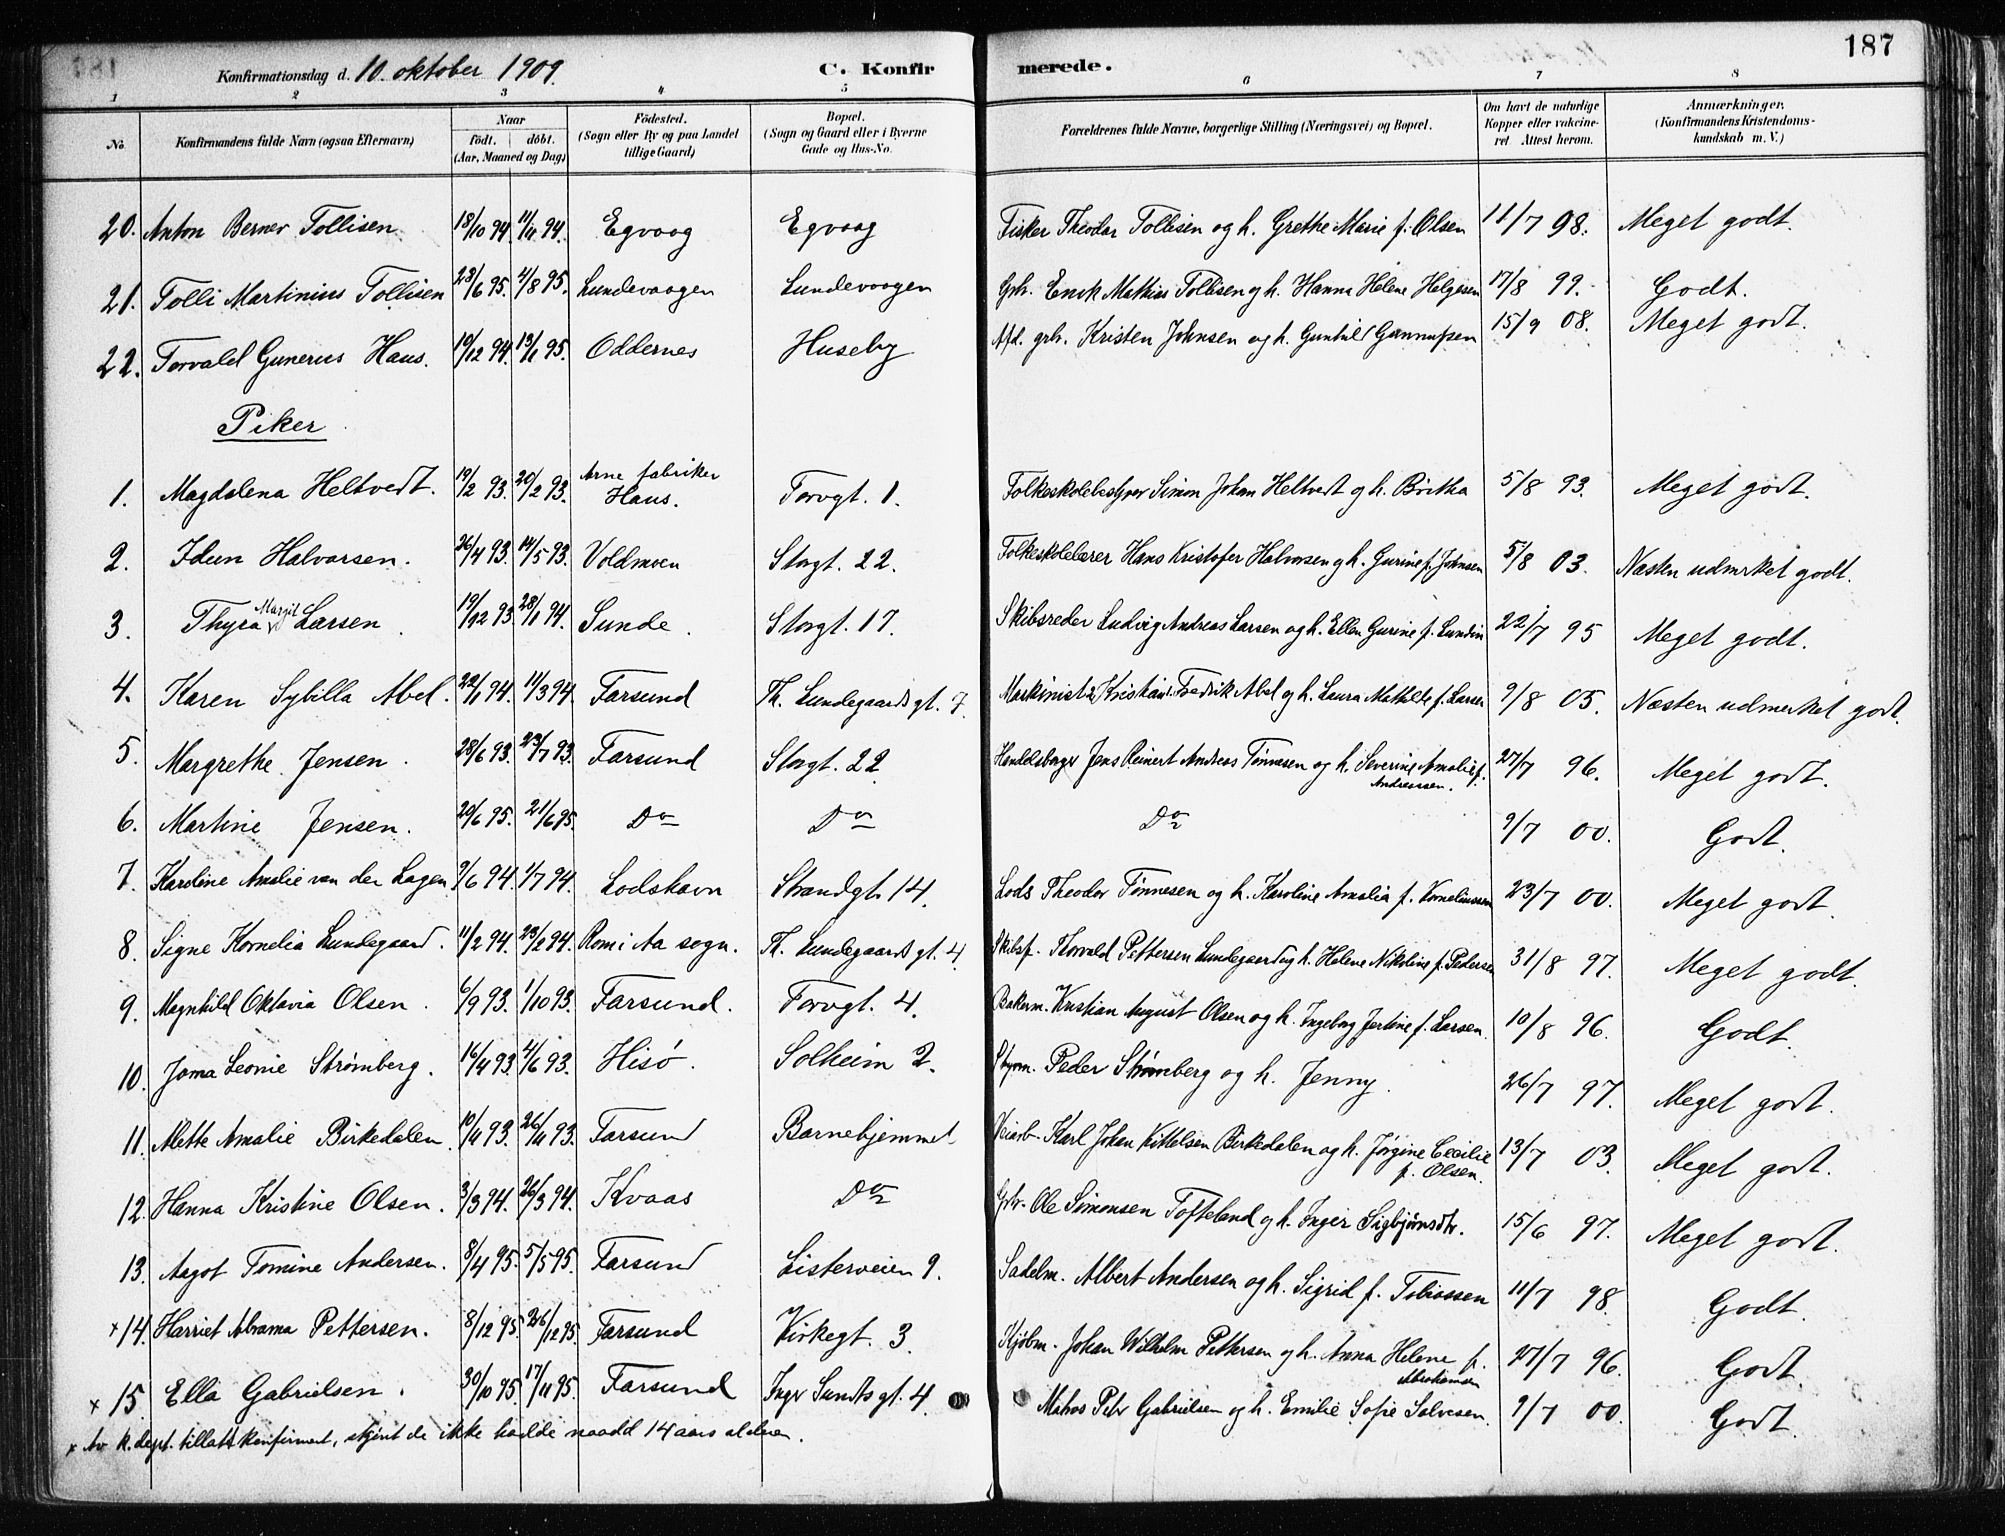 187
Konfirmationsdag d. 10. oktober 1909. C. Konfirmerede.
1 2 3 4 5 6 7 8
No. Konfirmandens fulde Navn (ogsaa Efternavn) Naar født. døbt. (Aar, Maaned og Dag) Fødested. (Sogn eller By og paa Landet tillige Gaard) Bopæl. (Sogn og Gaard eller i Byerne Gade og Hus-No. Forældrenes fulde Navne, borgerlige Stilling (Næringsvei) og Bopæl. Om havt de naturlige Kopper eller vakcineret Attest herom. Anmærkninger. (Konfirmandens Kristendomskundskab m. V.)
20. Anton Berner Tollisen 18/10 94. 11/11 94. Egvaag Egvaag Fisker Theodor Tollisen og h. Grethe Marie f. Olsen 11/7 98. Meget godt.
21. Tolli Martinius Tollisen 23/6 95. 4/8 95. Lundevaagen Lundevaagen Grh. Enok Mathias Tollisen og h. Hanna Helene Helgesen 17/8 99. Godt.
22. Torvald Gunerus Haus. 19/12 94. 13/1 95. Oddernes Huseby Afd. grh. Kristen Johnsen og h. Gunhild 15/9 08. Meget godt.
Piker
1. Magdalena Heltvedt. 19/2 93. 20/2 93. Arne fabriker Haus. Torvgt. 1. Folkeskolebestyrer Simon Johan Heltvedt og h. Britha 5/8 93. Meget godt.
2. Idun Halvorsen. 26/4 93. 14/5 93. Voldmoen Storgt. 22. Folkeskolelærer Hans Kristofer Halvorsen og h. Gurine f. Johnsen 5/8 03. Næsten udmrket godt.
3. Thyra Margit Larsen 19/12 93. 28/1 94. Sunde. Storgt. 17. Skibsreder Ludvig Andreas Larsen og h. Ellen Gurine f. Lundin 22/7 95 Meget godt.
4. Karen Sybilla Abel. 22/1 94. 11/3 94. Farsund Th. Lundegaards gt. 7. Maskinist Kristian Fredrik Abel og h. Laura Mathilde f. Larsen 9/8 05. Næsten udmerket godt.
5. Margrethe Jensen. 28/6 93. 23/7 93. Farsund Storgt. 22 Handelsborger Jens Reinert Andreas Tønnesen og h. Severine Amalie f. Andreassen. 27/7 96. Meget godt.
6. Martine Jensen. 20/6 95. 21/6 95. Do Do Do 9/7 00. Godt.
7. Karoline Amalie van der Lagen 9/6 94. 1/7 94. Lodshavn Strandgt. 14. Lods Theodor Tønnesen og h. Karoline Amalia f. Korneliussen 23/7 00. Meget godt.
8. Signe Kornelia Lundegaard. 11/2 94. 23/2 94. Rom i Aa sogn. Th. Lundegaards gt. 4. Skibsf. Thorvald Pettersen Lundegaard og h. Helene Nikoline f. Pedersen 31/8 97. Meget godt.
9. Magnhild Oktavia Olsen. 6/9 93. 1/10 93. Farsund. Torvgt. 4. Bakerm. Kristian August Olsen og h. Ingeborg Jertine f. Larsen. 10/8 96. Godt.
10. Joma Leonie Strømberg. 16/4 93. 4/6 93. Hisø. Solheim 2. Styrm. Peder Strømberg og h. Jenny. 26/7 97. Meget godt.
11. Mette Amalie Birkedalen 10/4 93. 26/4 93. Farsund Barnehjemmet Veiarb. Karl Johan Kittelsen Birkedalen og h. Jørgine Cecilie f. Olsen. 13/7 03. Meget godt.
12. Hanna Kristine Olsen. 3/3 94. 26/3 94. Kvaas Do Grh. Ole Simonsen Tofteland og h. Inger Sigbjørnsdtr. 15/6 97. Meget godt.
13. Aagot Tomine Andersen. 8/4 95. 5/5 95. Farsund Listerveien 9. Sadelm. Albert Andersen og h. Sigrid f. Tobiassen 11/7 98. Godt.
x 14. Harriet Abrama Pettersen. 8/12 95 26/12 95. Farsund Kirkegt. 3. Kjøbm. Johan Wilhelm Pettersen og h. Anna Helene f. Abrahamsen 27/7 96. Godt.
x 15. Ella Gabrielsen. 30/10 95. 17/11 95. Farsund Inger Sundts gt. 4 Matros Peter Gabrielsen og h. Emilie Sofie Salvesen. 9/7 00. Godt.
x Av K. dept. tillatt konfirmert, skjønt de ikke hadde naadd 14 aars alderen.